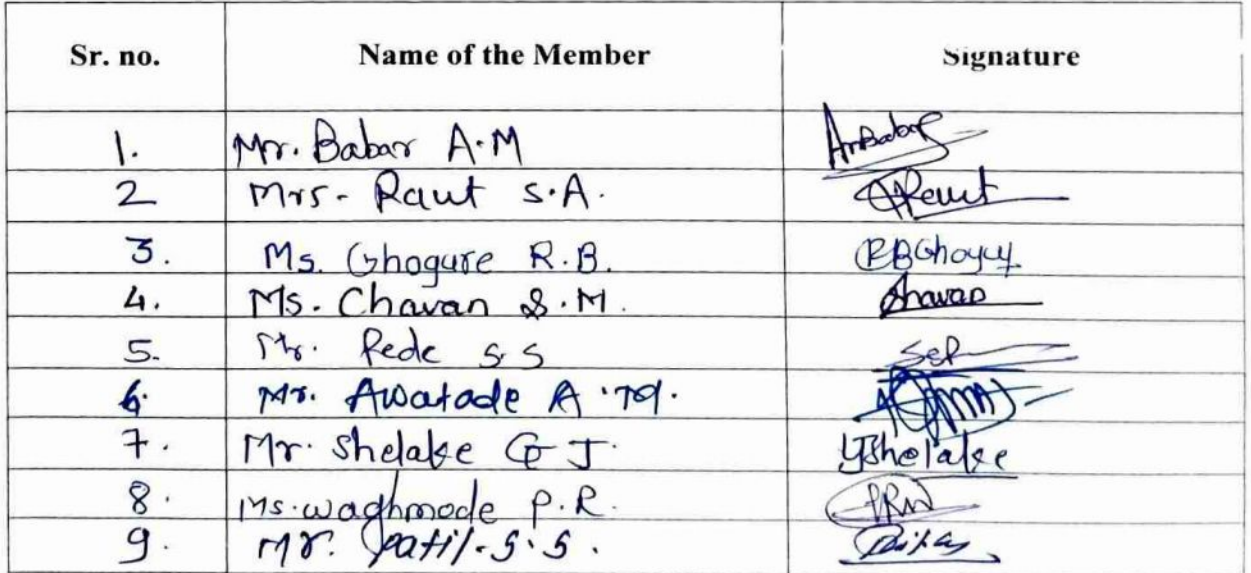 Sr. no. Name of the Member Signature
1. Mr. Babar A.M AmBabar
2 Mrs- Raut S.A. Raut
3. Ms. Ghogure R.B. RBGhogu
4. Ms. Chavan S.M. Chavan
5. Mr. Rede S.S
6. Mr. Awatade A.M.
7. Mr. Shelake G J. GJShelake
8. Ms. waghmode P.R. PRW
9. Mr. Patil. S.S.